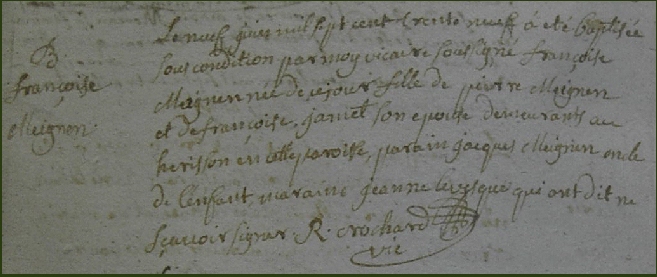 B
françoise
Meignen
Le neuf juin mil sept cent trente neuf a eté baptisée
sous condition par moy vicaire soussigné françoise
Meignen née de ce jour fille de pierre Meignen
et de françoise jamet son epouse demeurants au
herisson en cette paroisse, parain jacques Meignen oncle
de l'enfant, maraine jeanne levesque qui ont dit ne
sçavoir signer. R. Crochard
vic